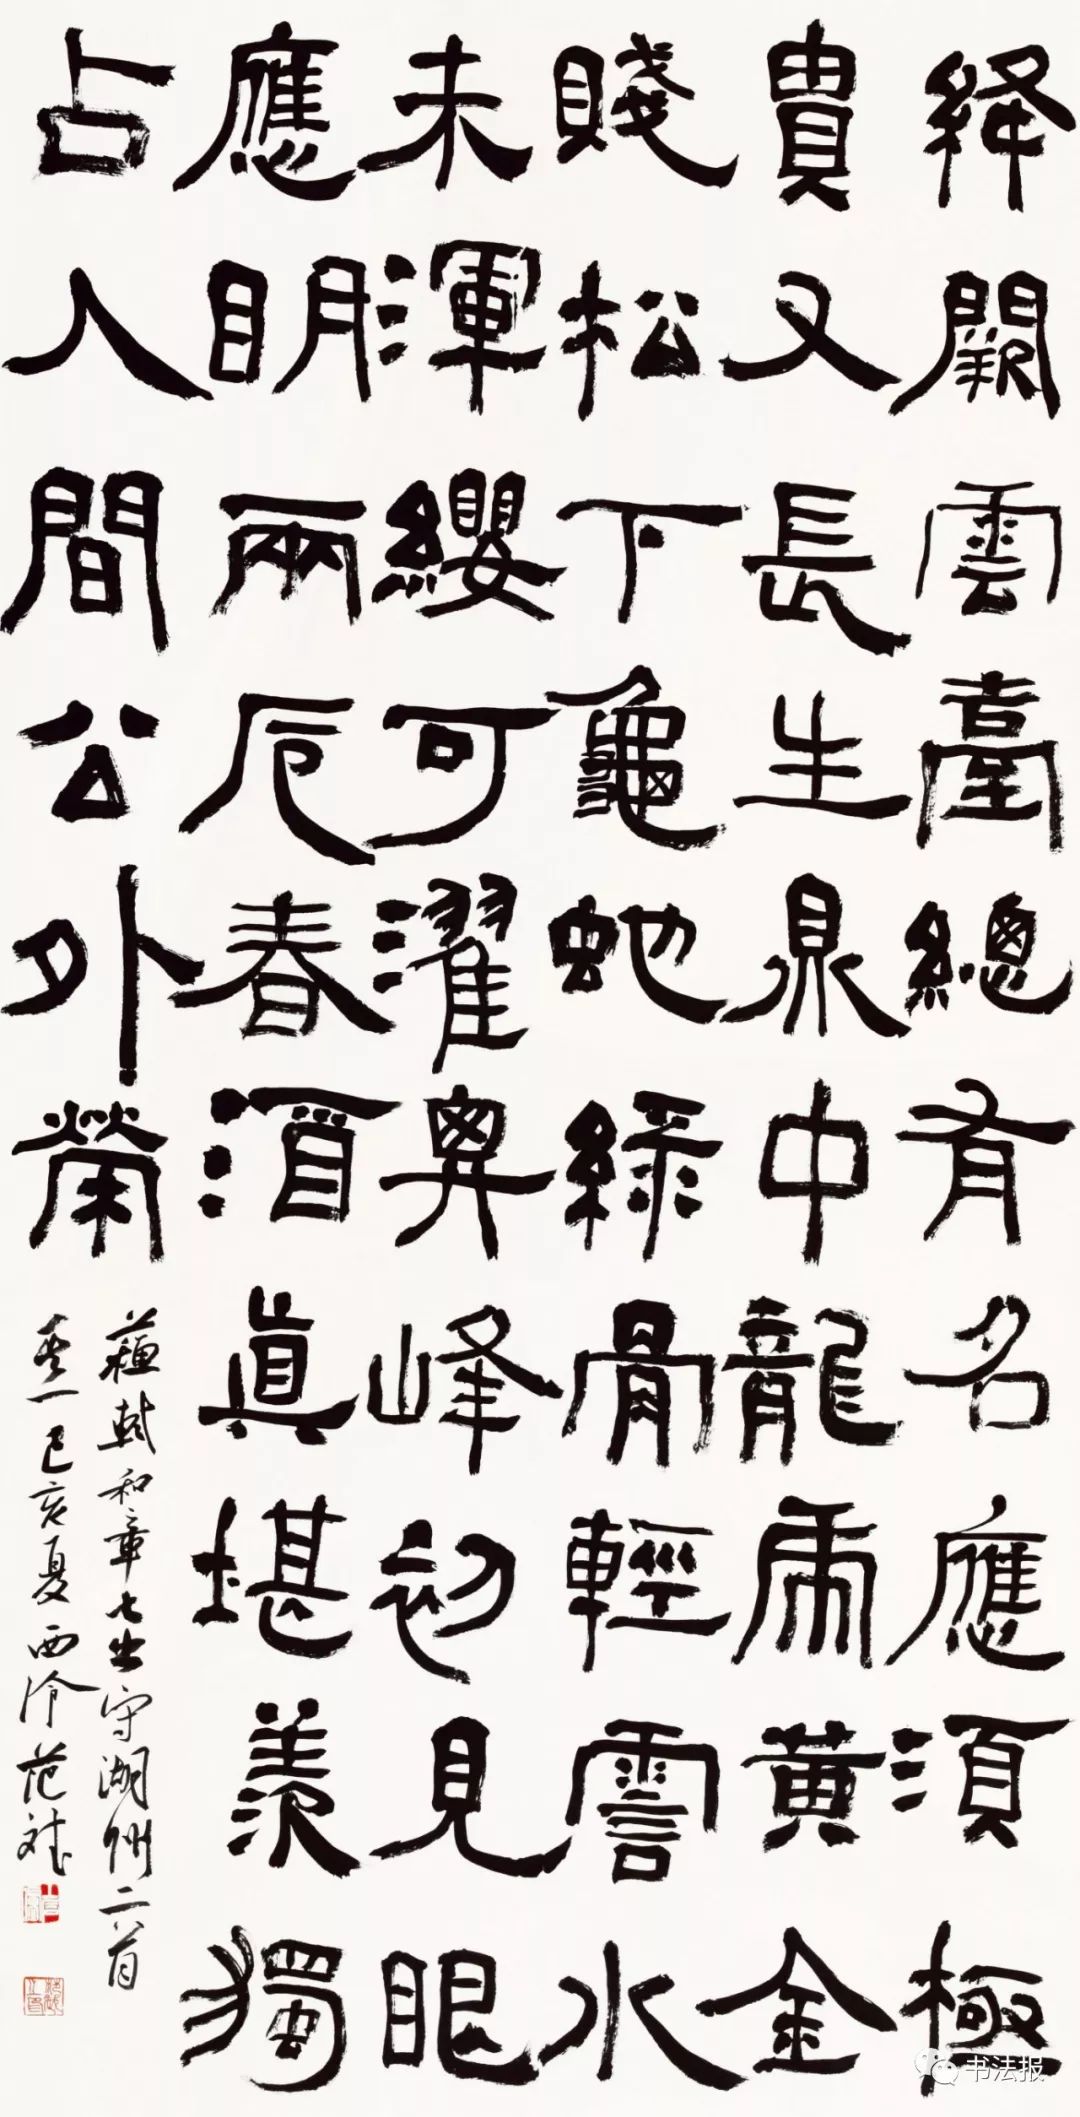 絳闕雲臺總有名應須極
貴又長生鼎中龍虎黃金
賤松下龜蛇綠骨輕霅水
未渾纓可濯弁峰初見眼
應明兩卮春酒真堪羨獨
占人間公外榮
蘇軾和章七出守湖州二首
其一己亥夏西泠范斌
书法报